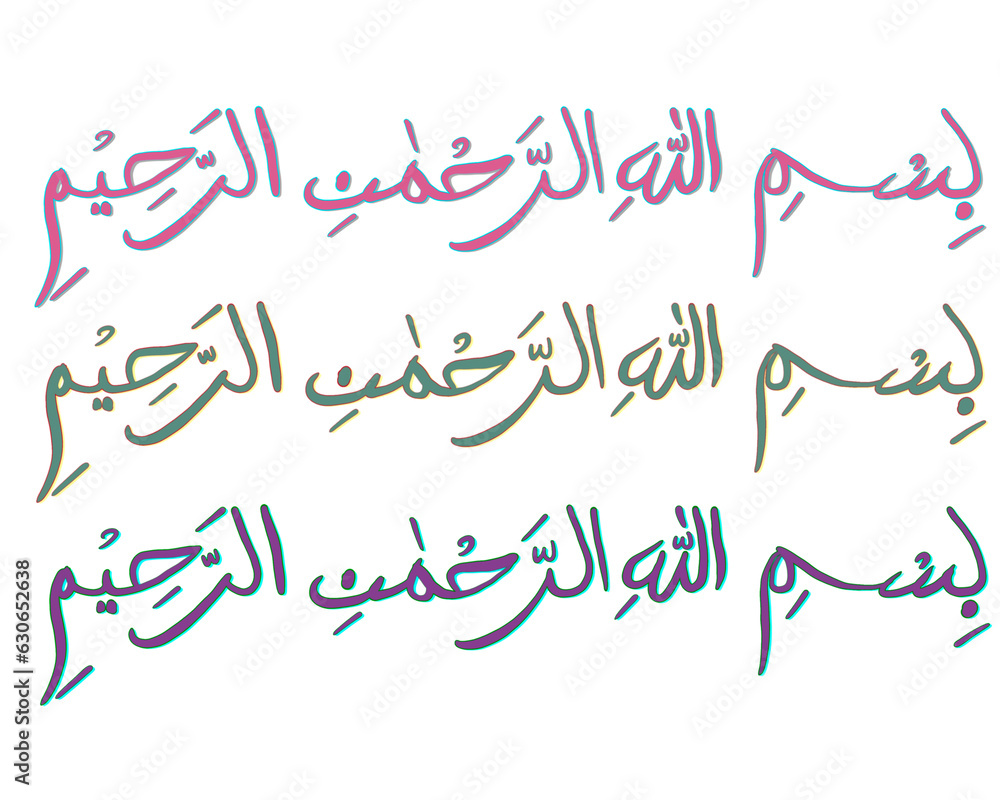 بِسْمِ اللّٰهِ الرَّحْمٰنِ الرَّحِيْمِ
بِسْمِ اللّٰهِ الرَّحْمٰنِ الرَّحِيْمِ
بِسْمِ اللّٰهِ الرَّحْمٰنِ الرَّحِيْمِ
Adobe Stock | #630652638